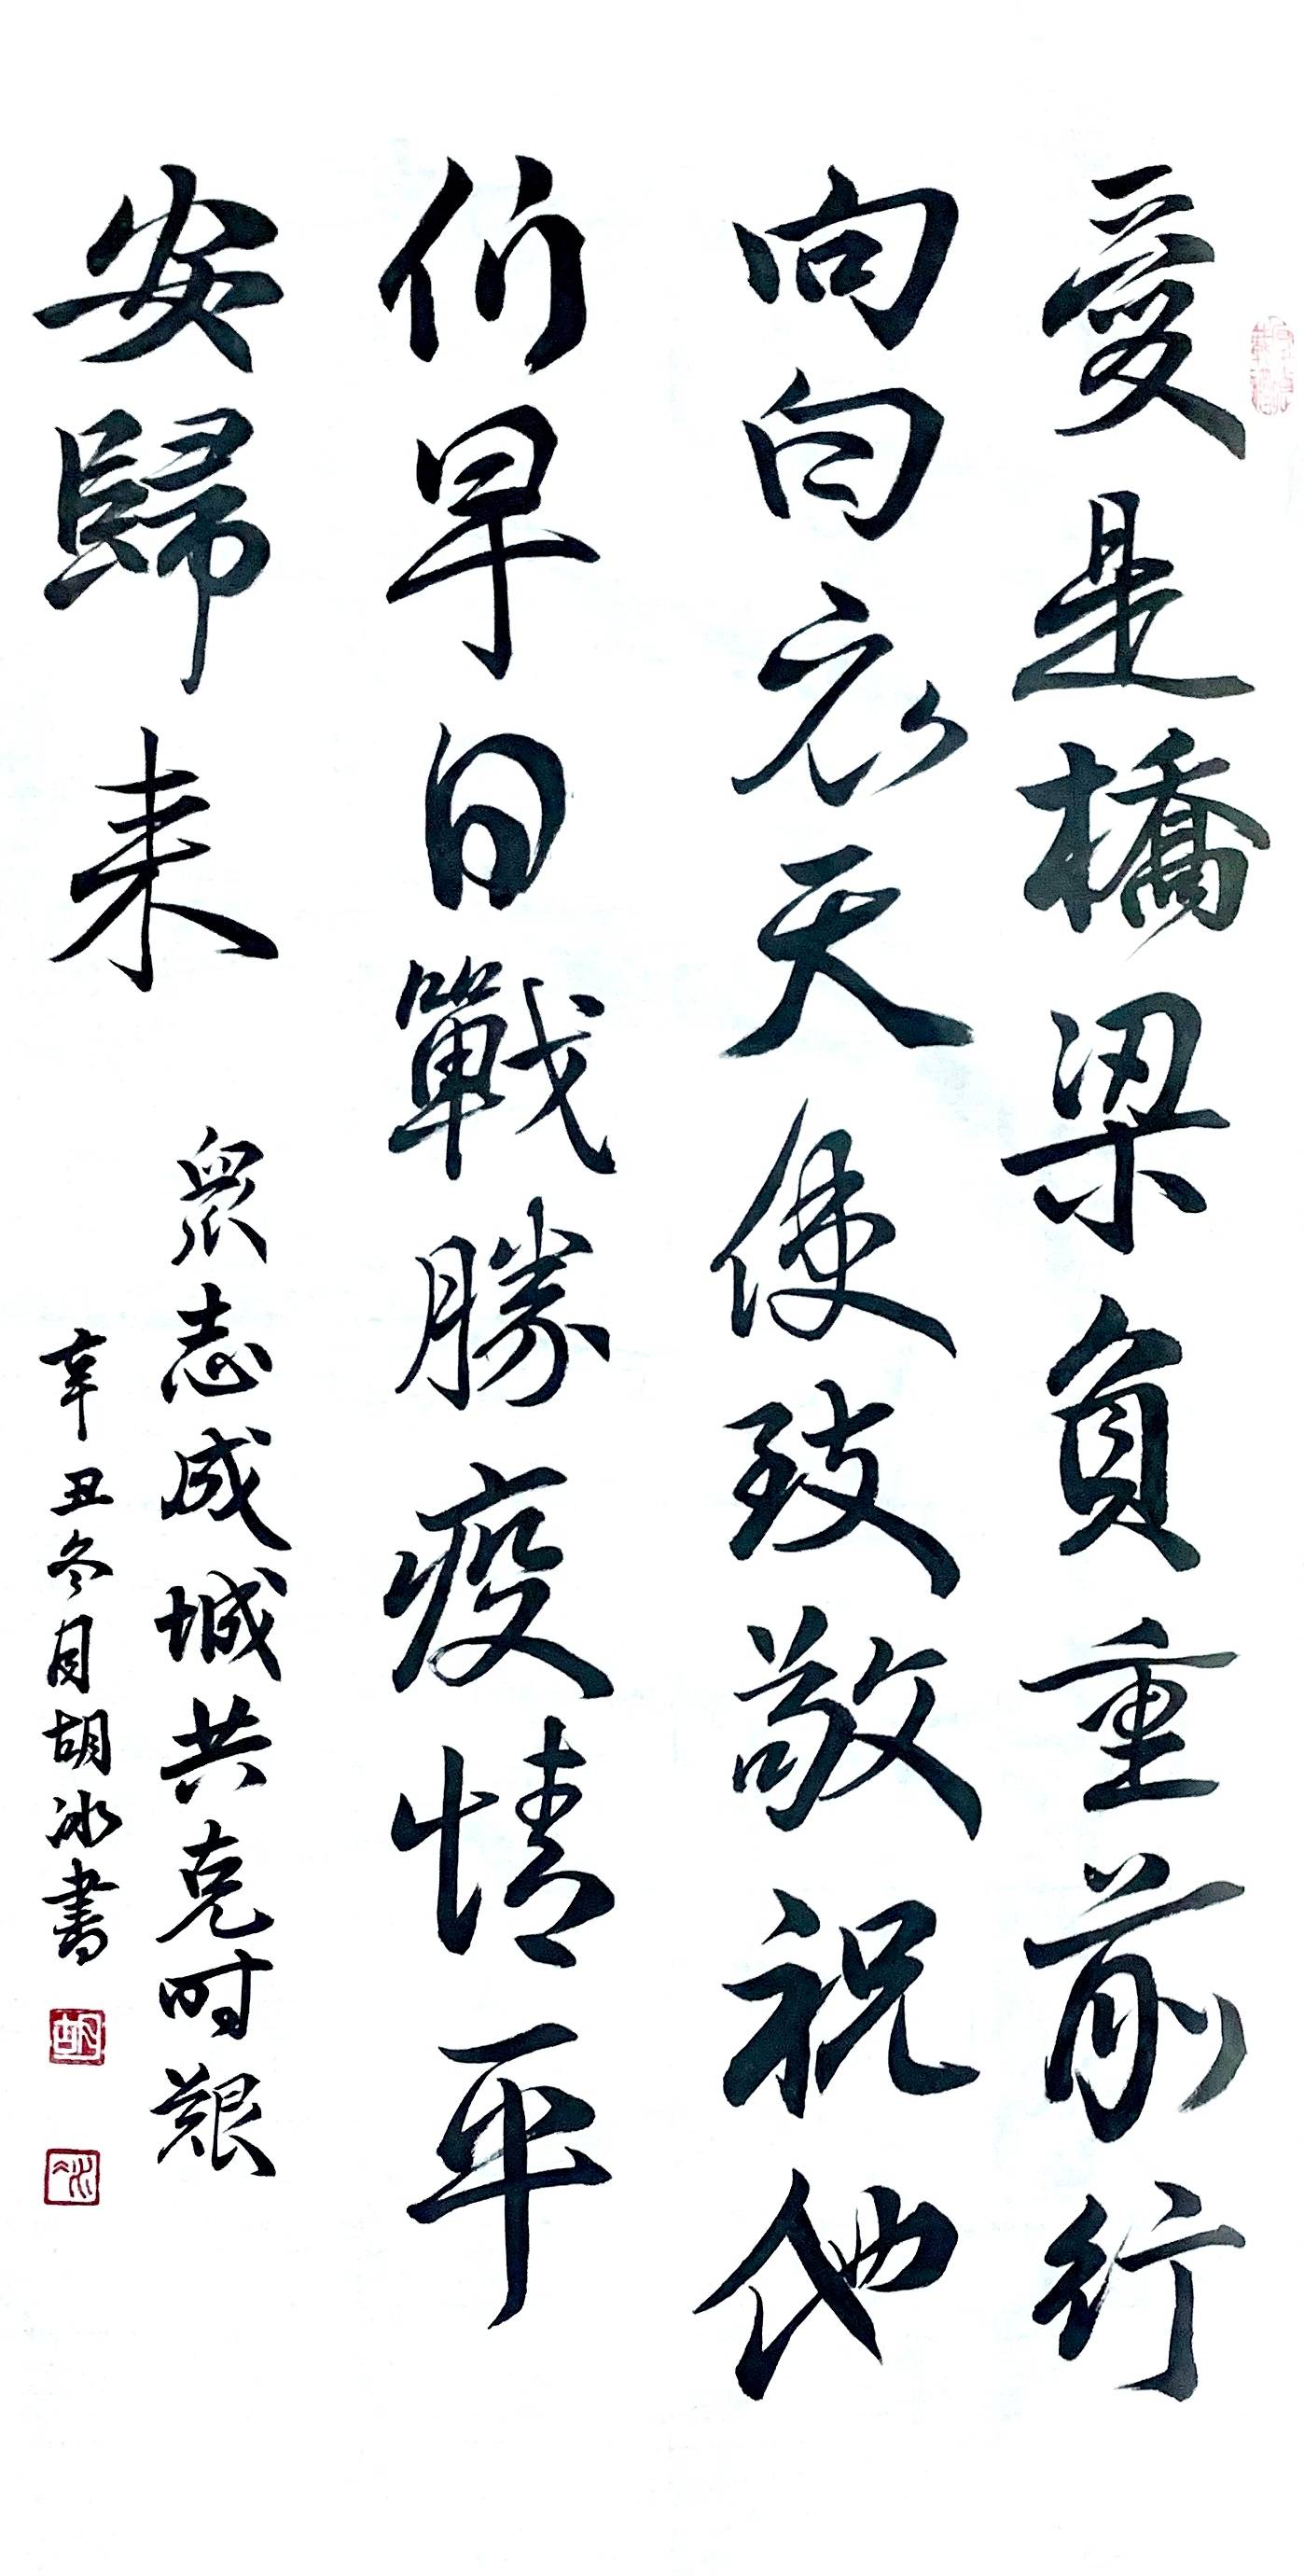 愛是橋梁負重前行
向白衣天使致敬祝他
们早日戰勝疫情平
安歸来
衆志成城共克时艱
辛丑冬月胡冰書
胡
冰